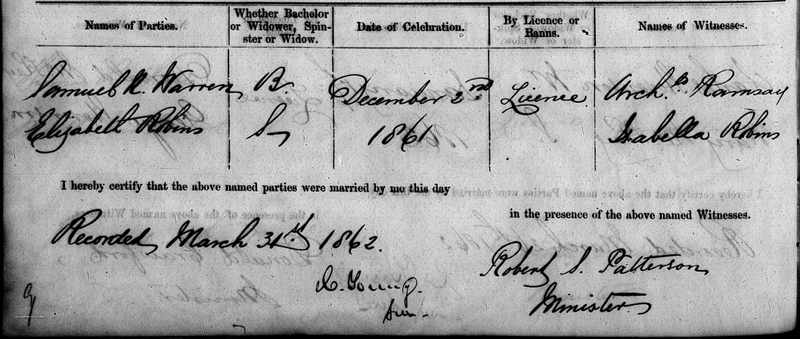 Names of Parties. Whether Bachelor or Widower, Spinster or Widow. Date of Celebration. By Licence or Banns. Names of Witnesses.
Samuel R. Warren B. December 2nd Licence Archd. Ramsay
Elizabeth Robins S 1861 Isabella Robins
I hereby certify that the above named parties were married by me this day
in the presence of the above named Witnesses.
Recorded March 31st 1862.
Robert S. Patterson
Minister
Young